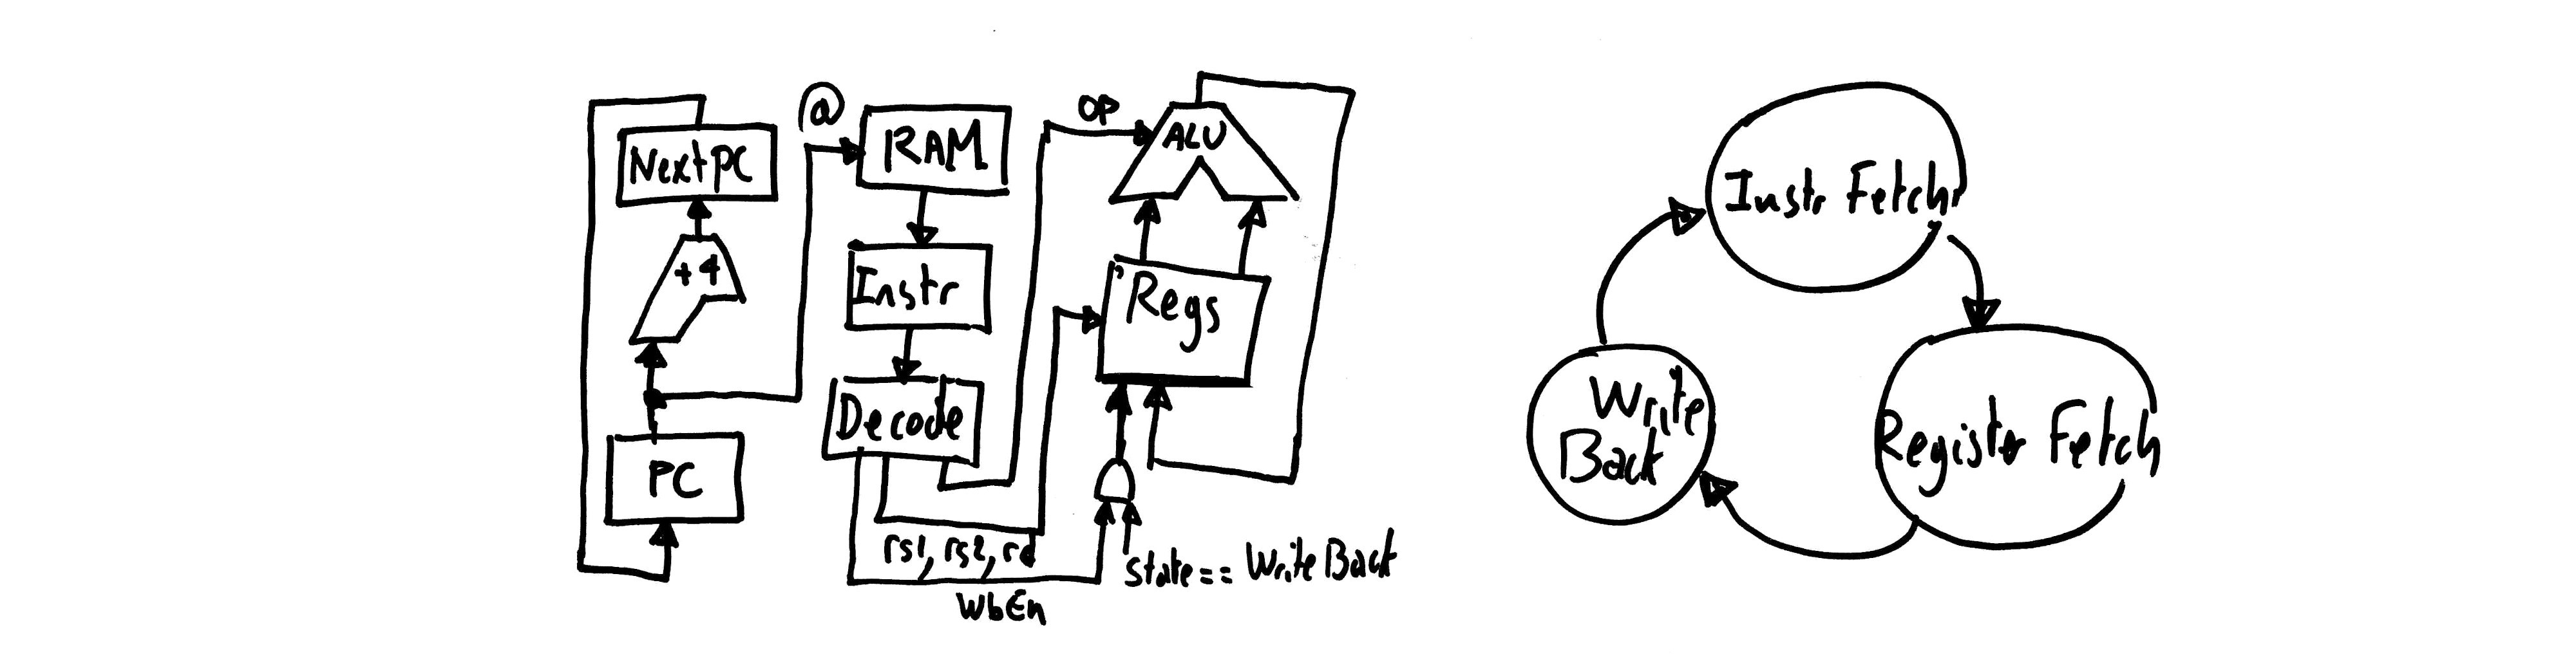 NextPC
+4
PC
@
RAM
Instr
Decode
rs1, rs2, rd
WbEn
OP
ALU
Regs
State== WriteBack
Instr Fetch
Register Fetch
Write
Back